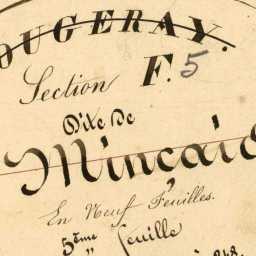 OUGERAY.
Section F. 5
Dite De
Mincaid
En Neuf Feuilles.
5ème Feuille